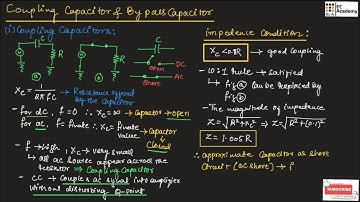 Coupling Capacitor & By pass Capacitor
EC Academy
(i) Coupling Capacitors:
C
R
R
a
b
C
open
DC
AC
Short
Xc = 1/2πfc → Resistance offered
by the capacitor
- for dc, f=0 ∴ Xc = ∞ → Capacitor → open
for ac, f = finite ∴ Xc = finite
value → Capacitor → closed
- f → high, Xc → very small
→ all ac source appear across the
resistor ⇒ Coupling Capacitor
- CC → couples ac signal into amplifier
without disturbing Q-point
impedence condition:
Xc < 0.1R → good coupling
- 10:1 rule → satisfied
↳ fig a can be replaced by
fig b
- The magnitude of impedence
Z = √R²+Xc² ⇒ Z = √R²+(0.1R)²
Z = 1.005R
∴ approximate capacitor as short
circuit (ac short) → f
SUBSCRIBE